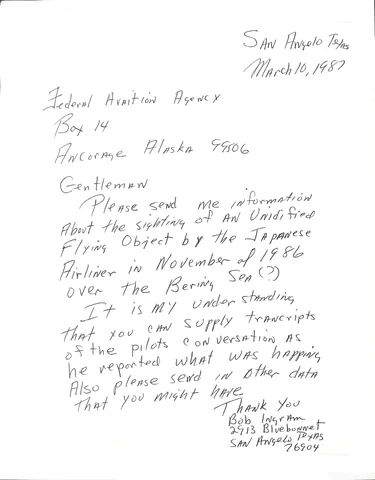 San Angelo Texas
March 10, 1987
Federal Avaition Agency
Box 14
Ancorage Alaska 99506
Gentleman
Please send me information
About the sighting of an Unidified
Flying Object by the Japanese
Airliner in November of 1986
over the Bering Sea (?)
It is my understanding
that you can supply trancripts
of the pilots conversation as
he reported what was happing
Also please send in other data
that you might have
Thank You
Bob Ingram
2913 Bluebonnet
San Angelo Texas
76904